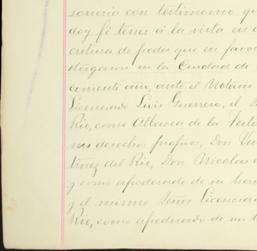 sonería con testimonio qu
doy fé tener á la vista en e
critura de poder que en favor
otorgaron en la Ciudad de
corriente año, ante el Notario
Licenciado Luis Guerrero, el
Rio, como Albacea de la Testa
sus derechos propios, Don Vi
tinez del Rio, Don Nicolas
y como apoderado de su herm
y el mismo Señor Licencia
Rio, como apoderado de su